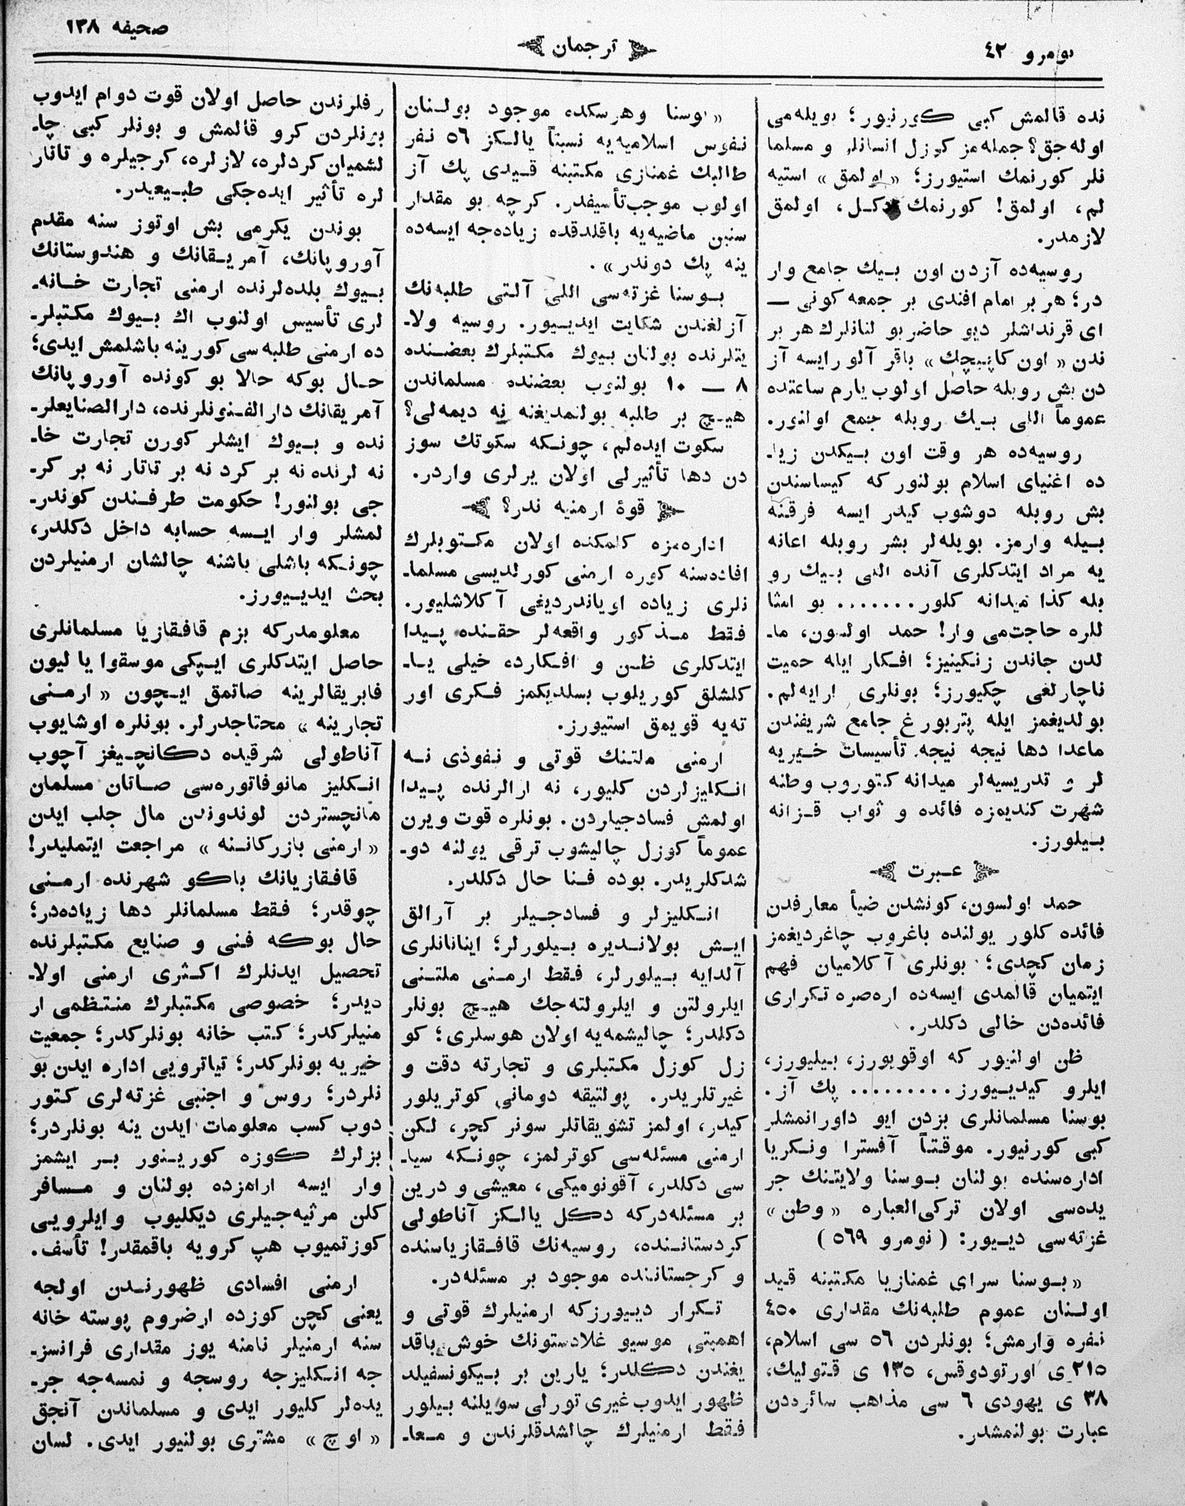 نومرو ٤٢
ترجمان
صحیفه ١٣٨
نده قالمش کبی کورنیور؛ بویله‌می
اوله‌جق؟ جمله‌مز کوزل انسانلر و مسلما
نلر کورنمك استیورز؛ «اولمق» استیه
لم، اولمق! کورنمك دکل، اولمق
لازمدر.
روسیه‌ده آزدن اون بیك جامع وار
در؛ هر بر امام افندی بر جمعه کونی —
ای قرنداشلر دیو حاضر بولنانلرك هر بر
ندن «اون کاپیچك» باقر آلور ایسه آز
دن بش روبله حاصل اولوب یارم ساعتده
عموماً اللی بیك روبله جمع اولنور.
روسیه‌ده هر وقت اون بیکدن زیا-
ده اغنیای اسلام بولنور که کیساسندن
بش روبله دوشوب کیدر ایسه فرقنه
بیله وارمز. بویله‌لر بشر روبله اعانه
یه مراد ایتدکلری آنده اللی بیك رو
بله کذا میدانه کلور....... بو امثا
للره حاجت‌می وار! حمد اولسون، ما-
لدن جاندن زنکینیز؛ افکار ایله حمیت
ناچارلغی چکیورز؛ بونلری ارایه‌لم.
بولدیغمز ایله پتربورغ جامع شریفندن
ماعدا دها نیجه نیجه تأسیسات خیریه
لر و تدریسیه‌لر میدانه کتوروب وطنه
شهرت کندیمزه فائده و ثواب قزانه
بیلورز.
عبرت
حمد اولسون، کونشدن ضیأ معارفدن
فائده کلور یولنده باغروب چاغردیغمز
زمان کچدی؛ بونلری آکلامیان فهم
ایتمیان قالمدی ایسه‌ده اره‌صره تکراری
فائده‌دن خالی دکلدر.
ظن اولنیور که اوقویورز، بیلیورز،
ایلرو کیدییورز......... پك آز.
بوسنا مسلمانلری بزدن ایو داورانمشلر
کبی کورنیور. موقتاً آفسترا ونکریا
اداره‌سنده بولنان بوسنا ولایتنك جر
یده‌سی اولان ترکی‌العباره «وطن»
غزته‌سی دییور: (نومرو ٥٦٩)
«بوسنا سرای غمنازیا مکتبنه قید
اولنان عموم طلبه‌نك مقداری ٤٥٠
نفره وارمش؛ بونلردن ٥٦ سی اسلام،
٢١٥ ی اورتودوقس، ١٣٥ ی قتولیك،
٣٨ ی یهودی ٦ سی مذاهب سائره‌دن
عبارت بولنمشدر.
«بوسنا وهرسکده موجود بولنان
نفوس اسلامیه‌یه نسبتاً یالکز ٥٦ نفر
طالبك غمنازی مکتبنه قیدی پك آز
اولوب موجب‌تأسیفدر. کرچه بو مقدار
سنین ماضیه‌یه باقلدقده زیاده‌جه ایسه‌ده
ینه پك دوندر».
بوسنا غزته‌سی اللی آلتی طلبه‌نك
آزلغندن شکایت ایدییور. روسیه ولا-
یتلرنده بولنان بیوك مکتبلرك بعضنده
٨ — ١٠ بولنوب بعضنده مسلماندن
هیچ بر طلبه بولنمدیغنه نه دیمه‌لی؟
سکوت ایده‌لم، چونکه سکوتك سوز
دن دها تأثیرلی اولان یرلری واردر.
قوهٔ ارمنیه ندر؟
اداره‌مزه کلمکده اولان مکتوبلرك
افاده‌سنه کوره ارمنی کورلدیسی مسلما-
نلری زیاده اویاندردیغی آکلاشلیور.
فقط مذکور واقعه‌لر حقنده پیدا
ایتدکلری ظن و افکارده خیلی یا-
کلشلق کوریلوب بسلدیکمز فکری اور
ته‌یه قویمق استیورز.
ارمنی ملتنك قوتی و نفوذی نه
انکلیزلردن کلیور، نه ارالرنده پیدا
اولمش فسادجیلردن. بونلره قوت ویرن
عموماً کوزل چالیشوب ترقی یولنه دو-
شدکلریدر. بوده فنا حال دکلدر.
انکلیزلر و فسادجیلر بر آرالق
ایش بولاندیره بیلورلر؛ اینانانلری
آلدایه بیلورلر، فقط ارمنی ملتنی
ایلرولتن و ایلرولته‌جك هیچ بونلر
دکلدر؛ چالیشمه‌یه اولان هوسلری؛ کو
زل کوزل مکتبلری و تجارته دقت و
غیرتلریدر. پولتیقه دومانی کوتریلور
کیدر، اولمز تشویقاتلر سونر کچر، لکن
ارمنی مسئله‌سی کوترلمز، چونکه سیا-
سی دکلدر، آقونومیکی، معیشی و درین
بر مسئله‌درکه دکل یالکز آناطولی
کردستانده، روسیه‌نك قافقازیاسنده
و کرجستاننده موجود بر مسئله‌در.
تکرار دییورزکه ارمنیلرك قوتی و
اهمیتی موسیو غلادستونك خوش باقد
یغندن دکلدر؛ یارین بر بیکونسفیلد
ظهور ایدوب غیری تورلی سویلنه بیلور
فقط ارمنیلرك چالشدقلرندن و معا-
رفلرندن حاصل اولان قوت دوام ایدوب
بونلردن کرو قالمش و بونلر کبی چا-
لشمیان کردلره، لازلره، کرجیلره و تاتار
لره تأثیر ایده‌جکی طبیعیدر.
بوندن یکرمی بش اوتوز سنه مقدم
آوروپانك، آمریقانك و هندوستانك
بیوك بلده‌لرنده ارمنی تجارت خانه-
لری تأسیس اولنوب اك بیوك مکتبلر-
ده ارمنی طلبه‌سی کورینه باشلمش ایدی؛
حال بوکه حالا بو کونده آوروپانك
آمریقانك دارالفنونلرنده، دارالصنایعلر-
نده و بیوك ایشلر کورن تجارت خا-
نه لرنده نه بر کرد نه بر تاتار نه بر کر-
جی بولنور! حکومت طرفندن کوندر-
لمشلر وار ایسه حسابه داخل دکلدر،
چونکه باشلی باشنه چالشان ارمنیلردن
بحث ایدییورز.
معلومدرکه بزم قافقازیا مسلمانلری
حاصل ایتدکلری ایپکی موسقوا یا لیون
فابریقالرینه صاتمق ایچون «ارمنی
تجارینه» محتاجدرلر. بونلره اوشایوب
آناطولی شرقیده دکانچیغز آچوب
انکلیز مانوفاتوره‌سی صاتان مسلمان
مانچستردن لوندوندن مال جلب ایدن
«ارمنی بازرکاننه» مراجعت ایتملیدر!
قافقازیانك باکو شهرنده ارمنی
چوقدر؛ فقط مسلمانلر دها زیاده‌در؛
حال بوکه فنی و صنایع مکتبلرنده
تحصیل ایدنلرك اکثری ارمنی اولا-
دیدر؛ خصوصی مکتبلرك منتظمی ار
منیلرکدر؛ کتب خانه بونلرکدر؛ جمعیت
خیریه بونلرکدر؛ تیاترویی اداره ایدن بو
نلردر؛ روس و اجنبی غزته‌لری کتور
دوب کسب معلومات ایدن ینه بونلردر؛
بزلرك کوزه کورینور بر ایشمز
وار ایسه ارامزده بولنان و مسافر
کلن مرثیه‌جیلری دیکلیوب وایلرویی
کوزتمیوب هپ کرویه باقمقدر! تأسف.
ارمنی افسادی ظهورندن اولجه
یعنی کچن کوزده ارضروم پوسته خانه
سنه ارمنیلر نامنه یوز مقداری فرانسز-
جه انکلیزجه روسجه و نمسه‌جه جر-
یده‌لر کلیور ایدی و مسلماندن آنجق
«اوچ» مشتری بولنیور ایدی. لسان